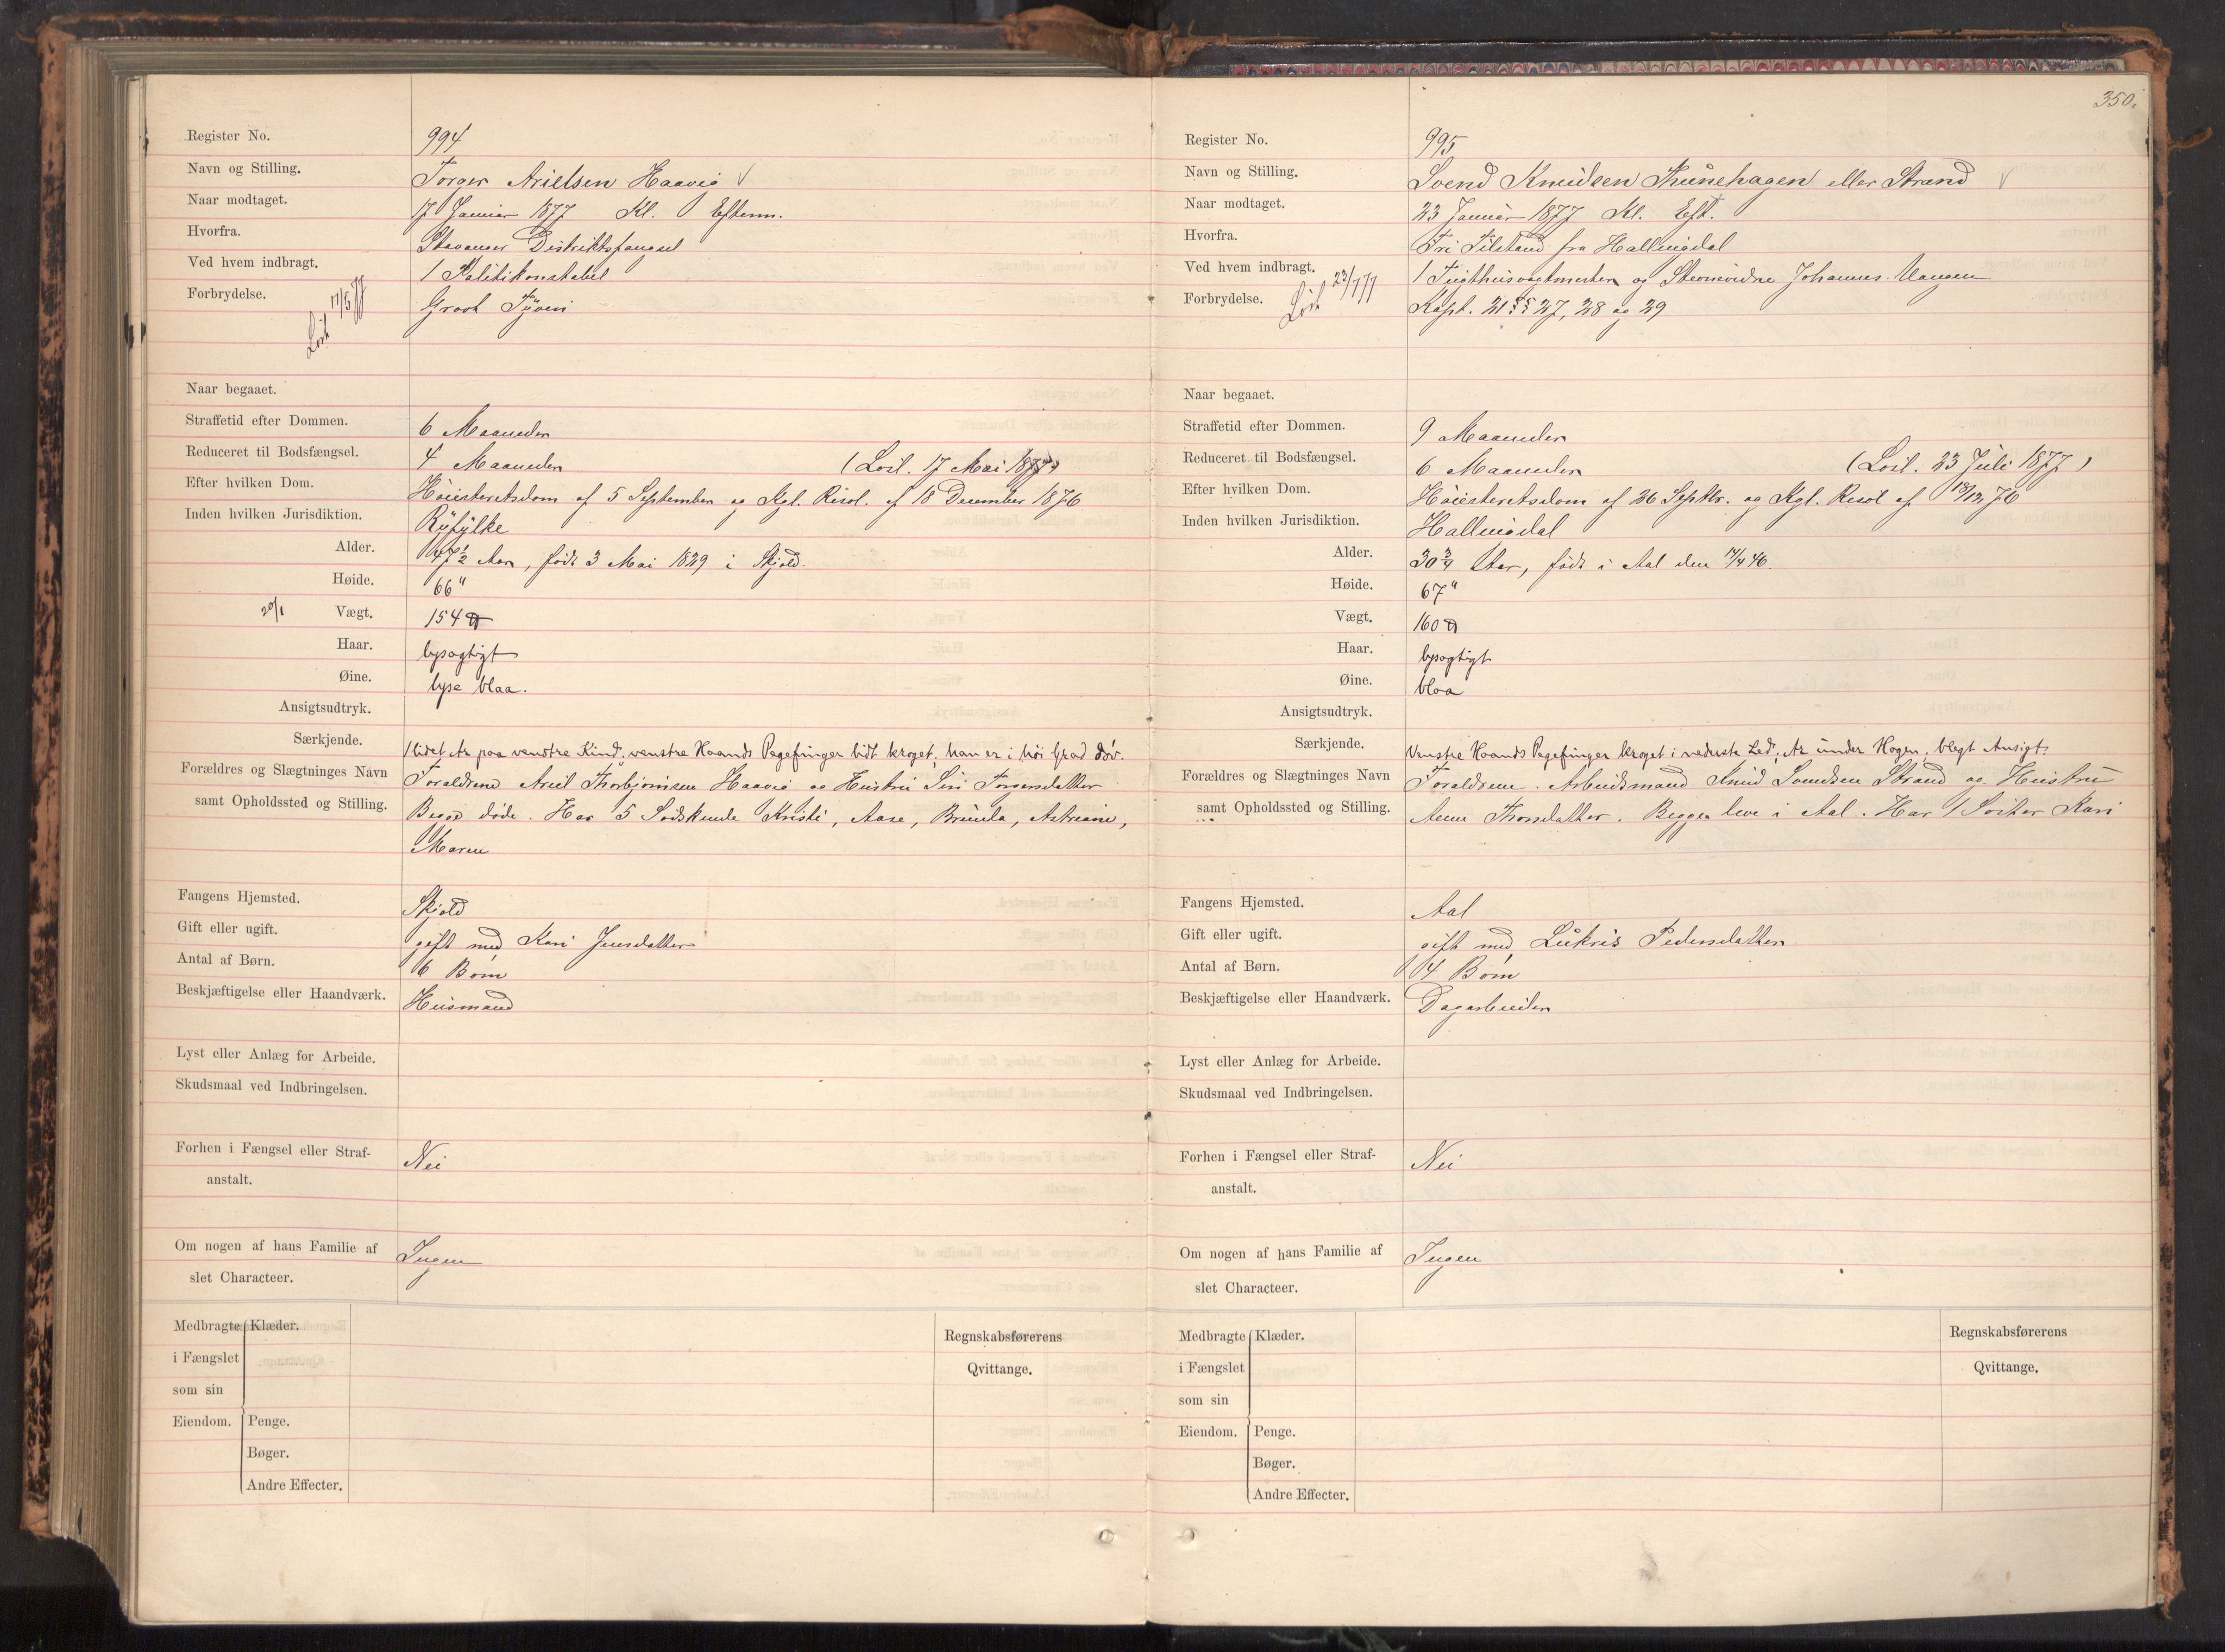 Register No. 994
Navn og Stilling. Torger Arielsen Haavig
Naar modtaget. 17 Januar 1877 Kl. Efterm.
Hvorfra. Stavanger Distriktsfængsel
Ved hvem indbragt. 1 Politikonstabel
Forbrydelse. Løsl 17/5 77 Grovt Tyveri
Naar begaaet.
Straffetid efter Dommen. 6 Maaneder
Reduceret til Bodsfængsel. 4 Maaneder (Løsl. 17 Mai 1877)
Efter hvilken Dom. Høiesteretsdom af 5 September og Kgl. Resol. af 18 December 1876
Inden hvilken Jurisdiktion. Ryfylke
Alder. 47½ Aar, født 3 Mai 1829 i Skjold.
Høide. 66"
20/1 Vægt. 154 ℔
Haar. lysagtigt
Øine. lyse blaa.
Ansigtsudtryk.
Særkjende. 1 lidet Ar paa venstre Kind, venstre Haands Pegefinger lidt kroget, han er i høi Grad døv.
Forældres og Slægtninges Navn Forældrene Ariel Thorbjørnsen Haavig og Hustru Siri Torgersdatter
samt Opholdssted og Stilling. Begge døde. Har 5 Sødskende Kristi, Aase, Brünla, Astriane,
Maren
Fangens Hjemsted. Skjold
Gift eller ugift. gift med Kari Jensdatter
Antal af Børn. 6 Børn
Beskjæftigelse eller Haandværk. Husmand
Lyst eller Anlæg for Arbeide.
Skudsmaal ved Indbringelsen.
Forhen i Fængsel eller Straf- Nei
anstalt.
Om nogen af hans Familie af Ingen
slet Characteer.
Medbragte Klæder. Regnskabsførerens
i Fængslet Qvittange.
som sin
Eiendom. Penge.
Bøger.
Andre Effecter.
350.
Register No. 995
Navn og Stilling. Svend Knudsen Thunehagen eller Strand
Naar modtaget. 23 Januar 1877 Kl. Eft.
Hvorfra. Fri Tilstand fra Hallingdal
Ved hvem indbragt. 1 Tugthusvagtmester og Stevnevidne Johannes
Forbrydelse. Løsl 23/7 77 Kapt. 21 §§ 27, 28 og 29
Naar begaaet.
Straffetid efter Dommen. 9 Maaneder
Reduceret til Bodsfængsel. 6 Maaneder (Løsl. 23 Juli 1877)
Efter hvilken Dom. Høiesteretsdom af 26 Septbr. og Kgl. Resol af 18/12 76
Inden hvilken Jurisdiktion. Hallingdal
Alder. 30¾ Aar, født i Aal den 14/4 46.
Høide. 67"
Vægt. 160 ℔
Haar. lysagtigt
Øine. blaa
Ansigtsudtryk.
Særkjende. Venstre Haands Pegefinger kroget i nederste Led, Ar under Hagen, blegt Ansigt.
Forældres og Slægtninges Navn Forældrene. Arbeidsmand Knud Svendsen Strand og Hustru
samt Opholdssted og Stilling. Anne Thorsdatter. Begge leve i Aal. Har 1 Søster Kari
Fangens Hjemsted. Aal
Gift eller ugift. gift med Lukris Pedersdatter
Antal af Børn. 4 Børn
Beskjæftigelse eller Haandværk. Dagarbeider
Lyst eller Anlæg for Arbeide.
Skudsmaal ved Indbringelsen.
Forhen i Fængsel eller Straf- Nei
anstalt.
Om nogen af hans Familie af Ingen
slet Characteer.
Medbragte Klæder. Regnskabsførerens
i Fængslet Qvittange.
som sin
Eiendom. Penge.
Bøger.
Andre Effecter.